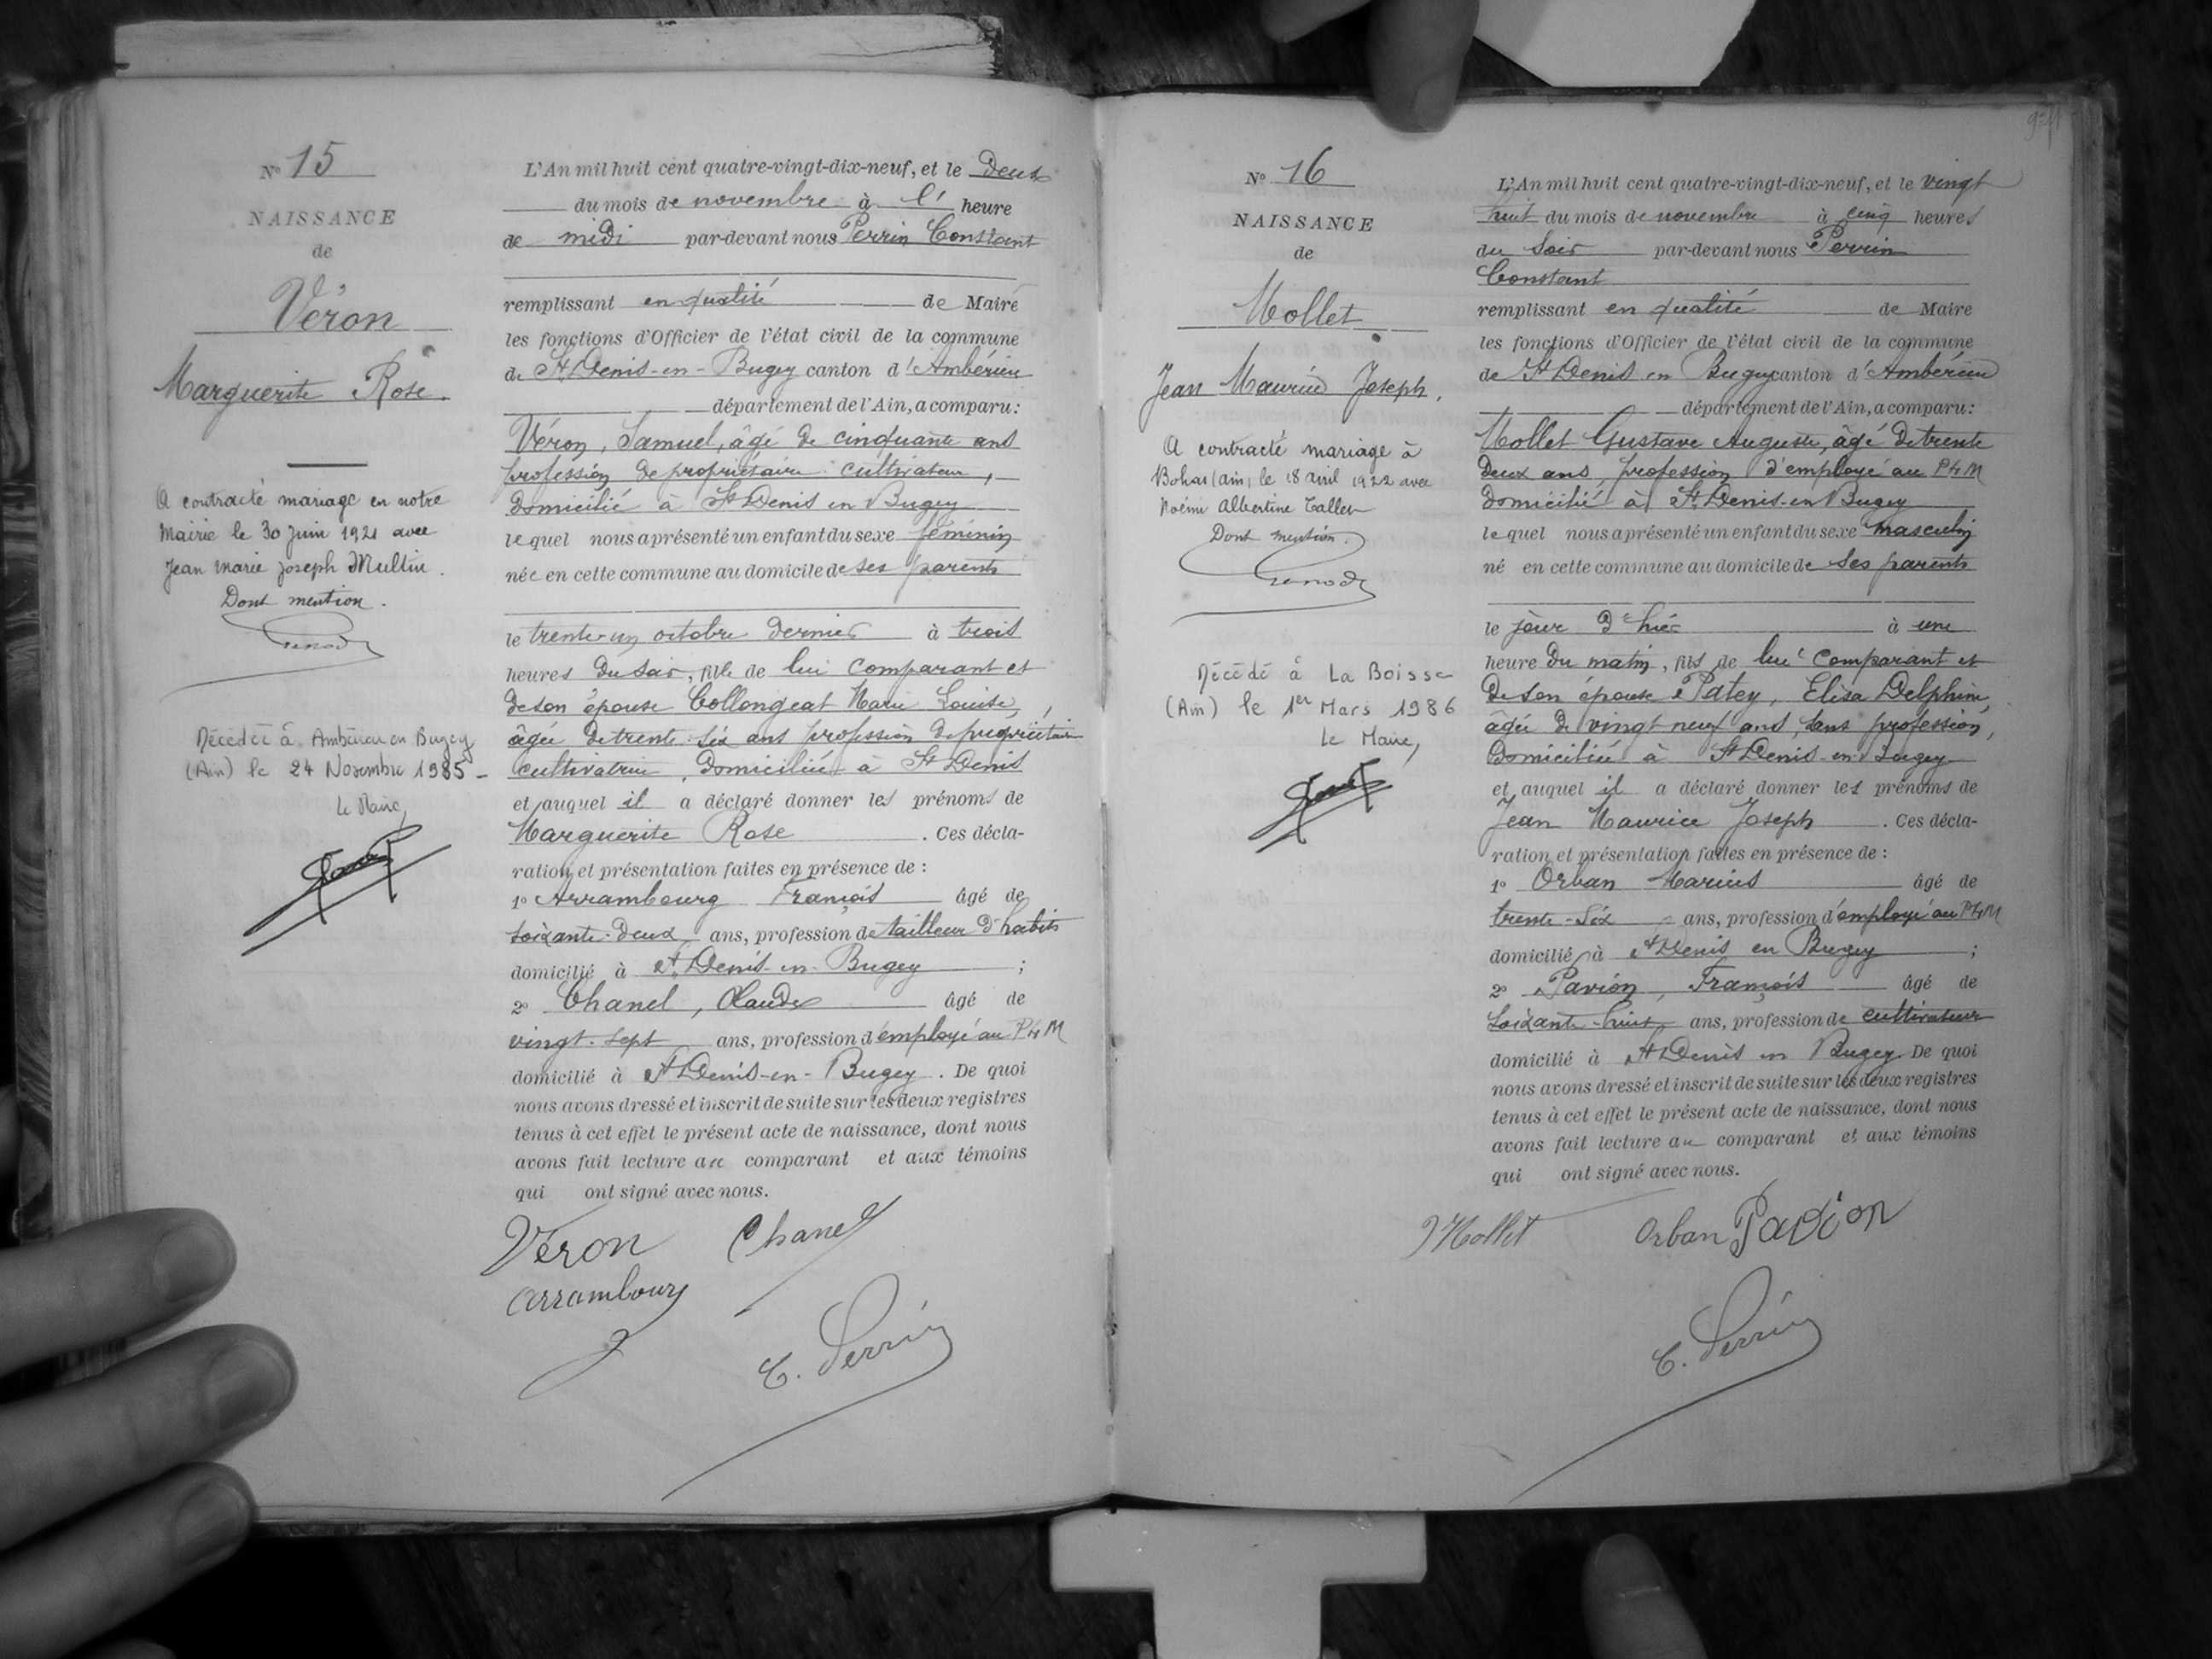 N° 15
NAISSANCE
de
Véron
Marguerite Rose.
A contracté mariage en notre
Mairie le 30 Juin 1921 avec
Jean Marie Joseph Multin.
Dont mention.
Décédée à Ambérieu en Bugey
(Ain) le 24 Novembre 1985 -
Le Maire,
L'An mil huit cent quatre-vingt-dix-neuf, et le deux
du mois de novembre à l' heure
de midi par-devant nous Perrin Constant
remplissant en qualité de Maire
les fonctions d'Officier de l'état civil de la commune
de St Denis-en-Bugey canton d'Ambérieu
département de l'Ain, a comparu:
Véron, Samuel, âgé de cinquante ans
profession de propriétaire cultivateur,
domicilié à St Denis en Bugey
lequel nous a présenté un enfant du sexe féminin
née en cette commune au domicile de ses parents
le trente-un octobre dernier à trois
heures du soir, fille de lui comparant et
de son épouse Collongeat Marie Louise,
âgée de trente-six ans profession de propriétaire
cultivatrice, domiciliée à St Denis
et auquel il a déclaré donner les prénoms de
Marguerite Rose. Ces décla-
ration et présentation faites en présence de :
1° Arrambourg François âgé de
soixante-deux ans, profession de tailleur d'habits
domicilié à St Denis-en-Bugey ;
2° Chanel, Claude âgé de
vingt-sept ans, profession d'employé au PLM
domicilié à St Denis-en-Bugey. De quoi
nous avons dressé et inscrit de suite sur les deux registres
tenus à cet effet le présent acte de naissance, dont nous
avons fait lecture au comparant et aux témoins
qui ont signé avec nous.
Véron Chanel
Arrambourg
C. Perrin
N° 16
NAISSANCE
de
Mollet
Jean Maurice Joseph.
A contracté mariage à
Bohas (Ain) le 18 avril 1922 avec
Noémi Albertine
Dont mention.
Décédé à La Boisse
(Ain) le 1er Mars 1986
Le Maire,
L'An mil huit cent quatre-vingt-dix-neuf, et le vingt
huit du mois de novembre à cinq heures
du soir par-devant nous Perrin
Constant
remplissant en qualité de Maire
les fonctions d'Officier de l'état civil de la commune
de St Denis en Bugey canton d'Ambérieu
département de l'Ain, a comparu:
Mollet Gustave Auguste, âgé de trente
deux ans, profession d'employé au PLM
domicilié à St Denis-en Bugey
lequel nous a présenté un enfant du sexe masculin
né en cette commune au domicile de ses parents
le jour d'hier à une
heure du matin, fils de lui comparant et
de son épouse Patey, Elisa Delphine,
âgée de vingt neuf ans, sans profession,
domiciliée à St Denis-en-Bugey
et auquel il a déclaré donner les prénoms de
Jean Maurice Joseph. Ces décla-
ration et présentation faites en présence de :
1° Orban Marius âgé de
trente-six ans, profession d'employé au PLM
domicilié à St Denis en Bugey ;
2° Pavion, François âgé de
soixante-huit ans, profession de cultivateur
domicilié à St Denis en Bugey. De quoi
nous avons dressé et inscrit de suite sur les deux registres
tenus à cet effet le présent acte de naissance, dont nous
avons fait lecture au comparant et aux témoins
qui ont signé avec nous.
Mollet Orban Pavion
C. Perrin